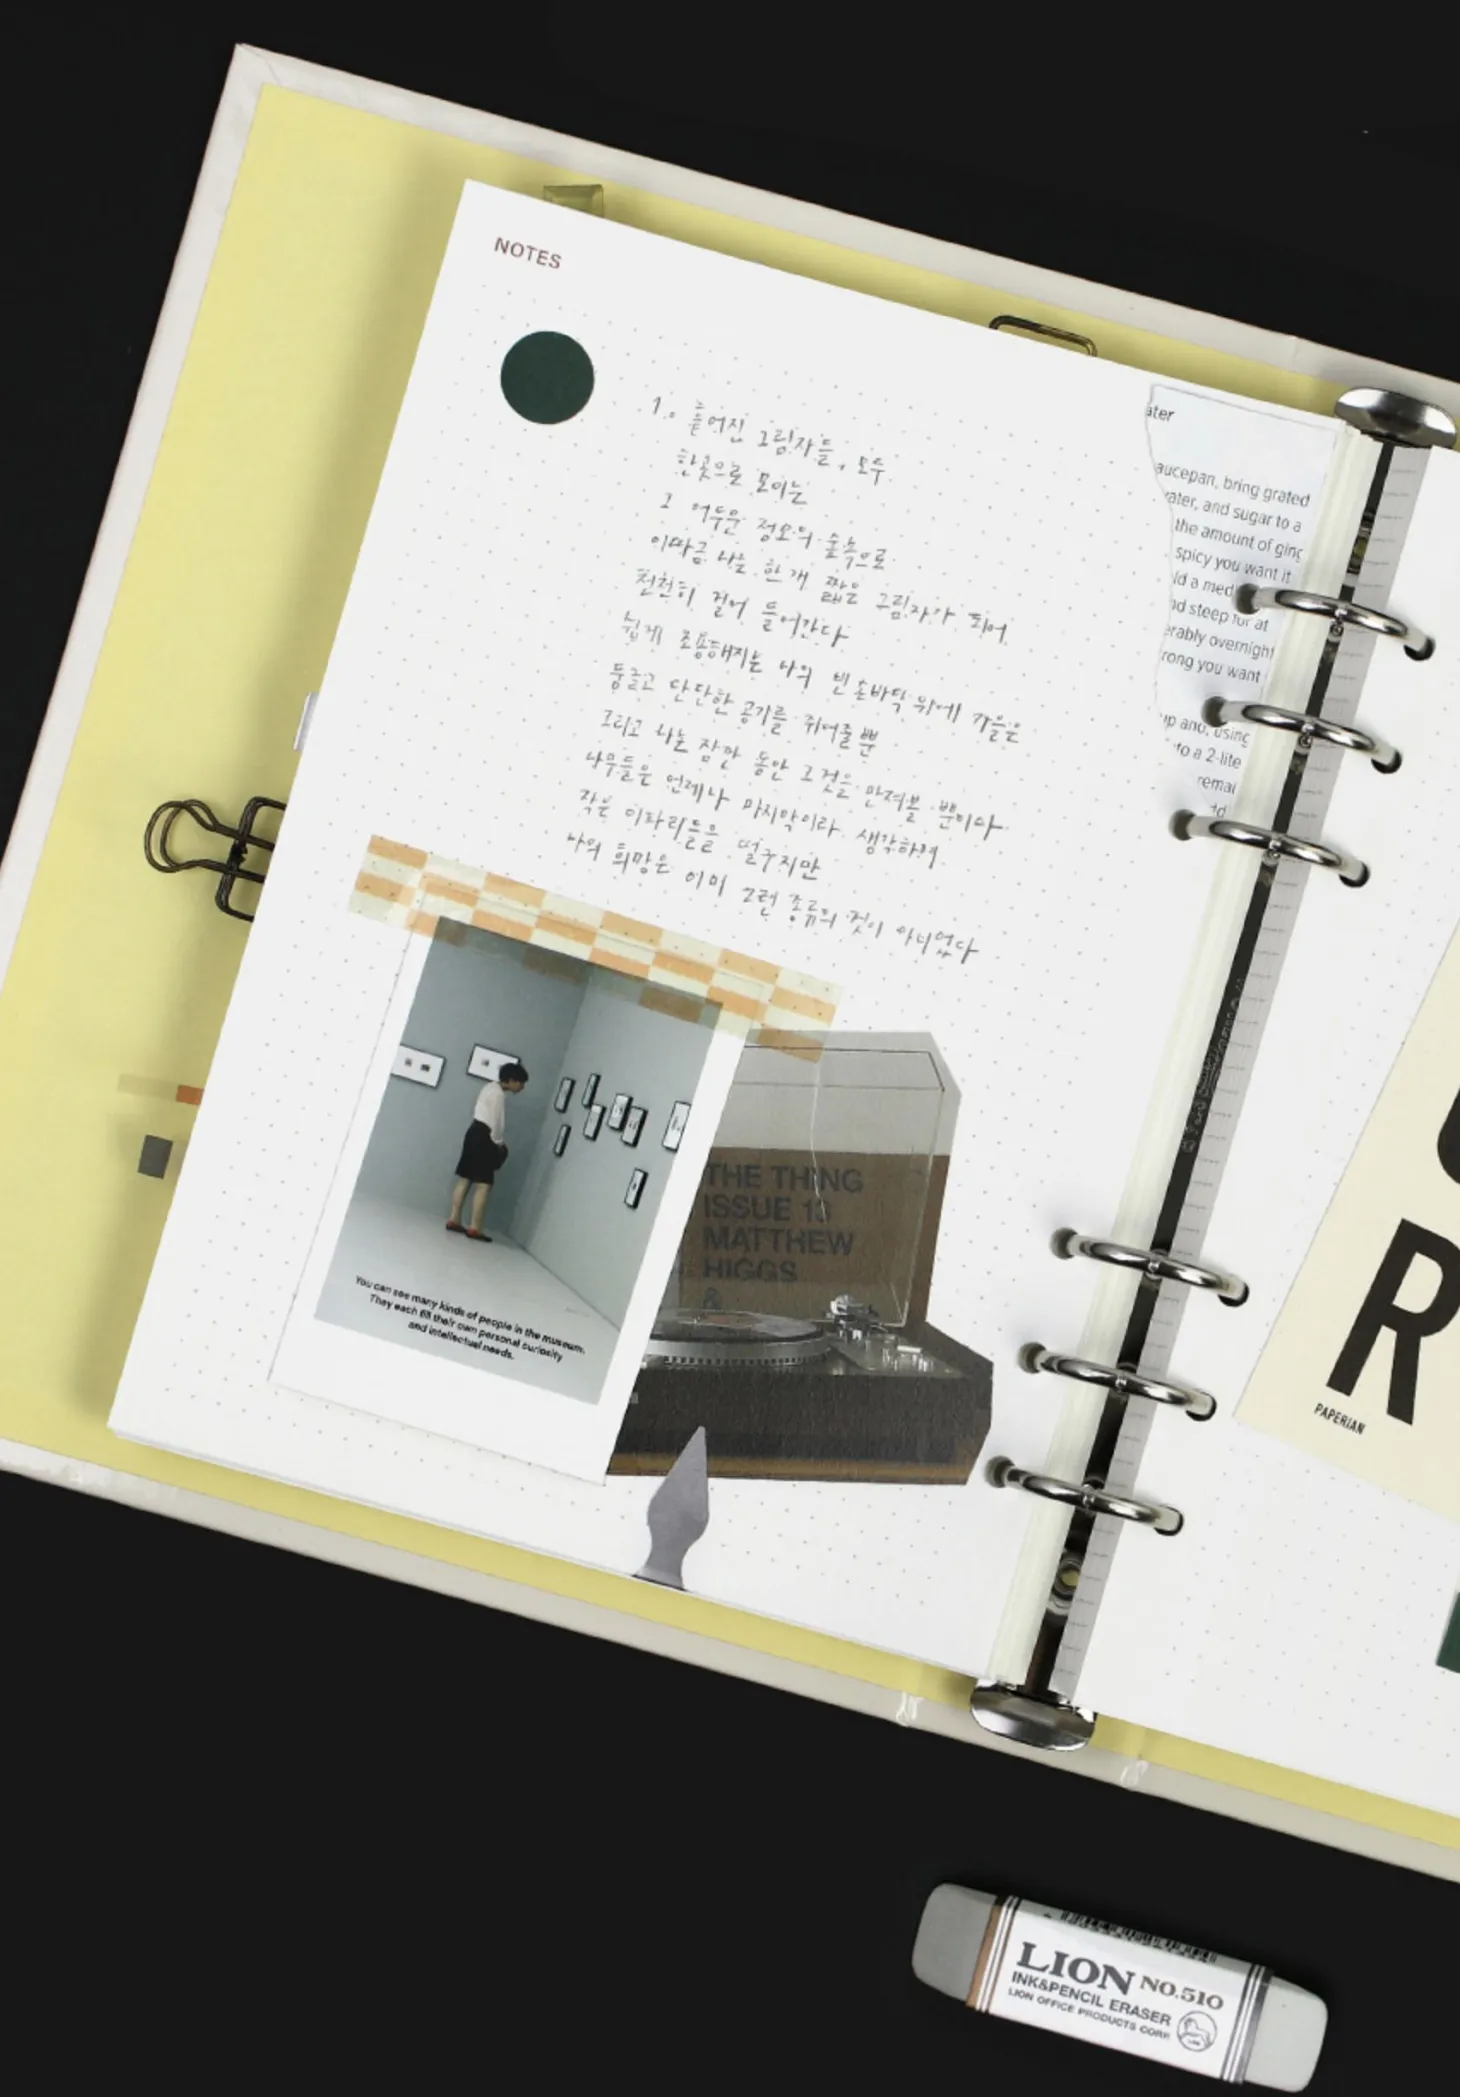 NOTES
1. 흩어진 그림자들, 모두
한곳으로 모이는
2 어두운 정오의 숲속으로
이따금 나는 한 개 짧은 그림자가 되어
천천히 걸어 들어간다
쉽게 조용해지는 나의 빈 손바닥 위에 가을은
둥글고 단단한 공기를 쥐어줄 뿐
그리고 나는 잠깐 동안 그것을 만져볼 뿐이다
나무들은 언제나 마지막이라 생각하며
작은 이파리들을 떨구지만
나의 희망은 이미 그런 종류의 것이 아니었다
ater
aucepan, bring grated
ater, and sugar to a
the amount of ging
spicy you want it
ld a med
nd steep for at
erably overnight
rong you want
up and, using
to a 2-lite
remai
You can see many kinds of people in the museum.
They each fill their own personal curiosity
and intellectual needs.
THE THING
ISSUE 13
MATTHEW
HIGGS
&
R
PAPERIAN
LION NO.510
INK&PENCIL ERASER
LION OFFICE PRODUCTS CORP.